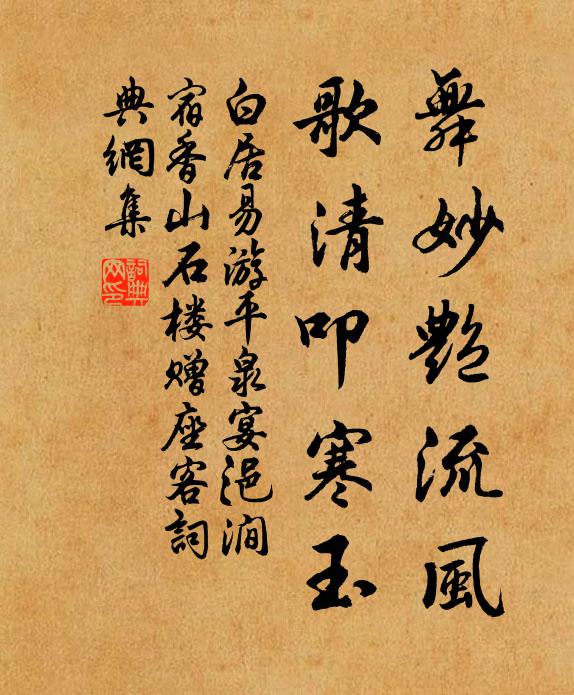 舞妙艶流風
歌清叩寒玉
白居易游平泉宴浥澗
宿香山石楼赠座客詞
典網集
詞典网印